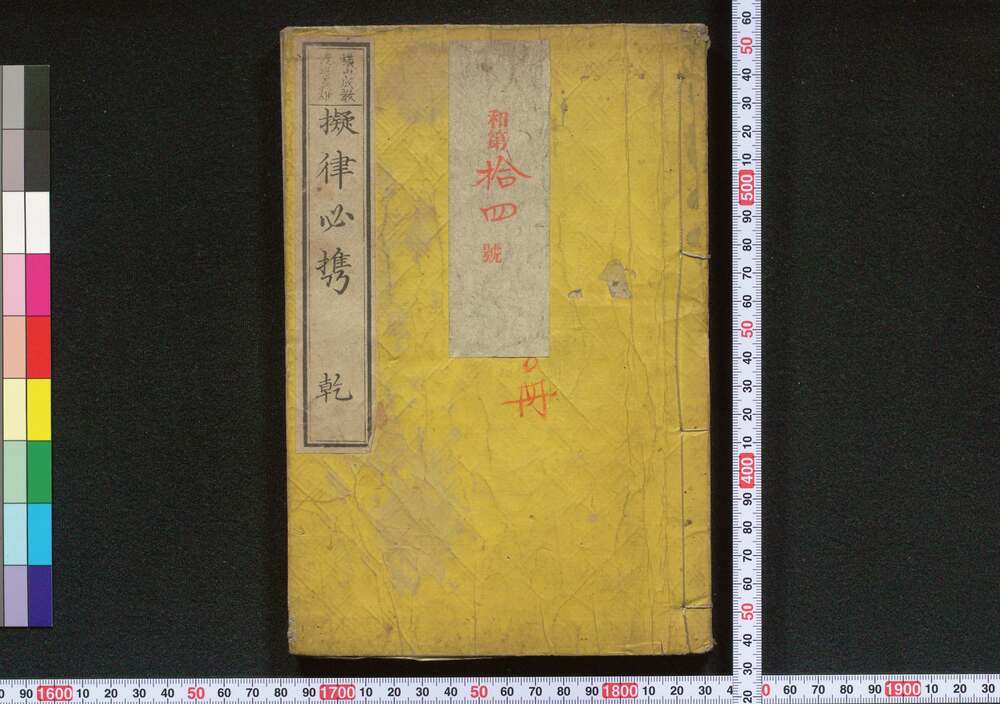 擬律必携 乾
和第拾四號
冊
60
50
40
30
20
10
500
90
80
70
60
50
40
30
20
10
400
90
80
70
60
50
40
30
20
90 1600 10 20 30 40 50 60 70 80 90 1700 10 20 30 40 50 60 70 80 90 1800 10 20 30
60 70 80 90 1900 10 20 30